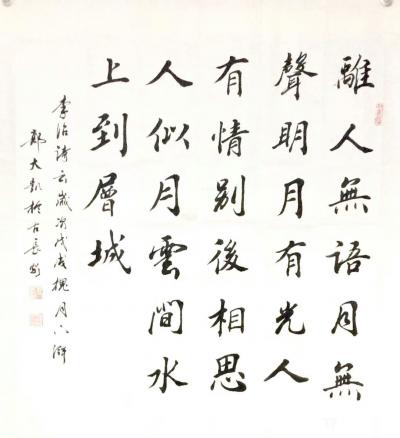 離人無語月無
聲明月有光人
有情別後相思
人似月雲間水
上到層城
李治詩云歲次戊戌槐月下澣
鄭大凱於古長安